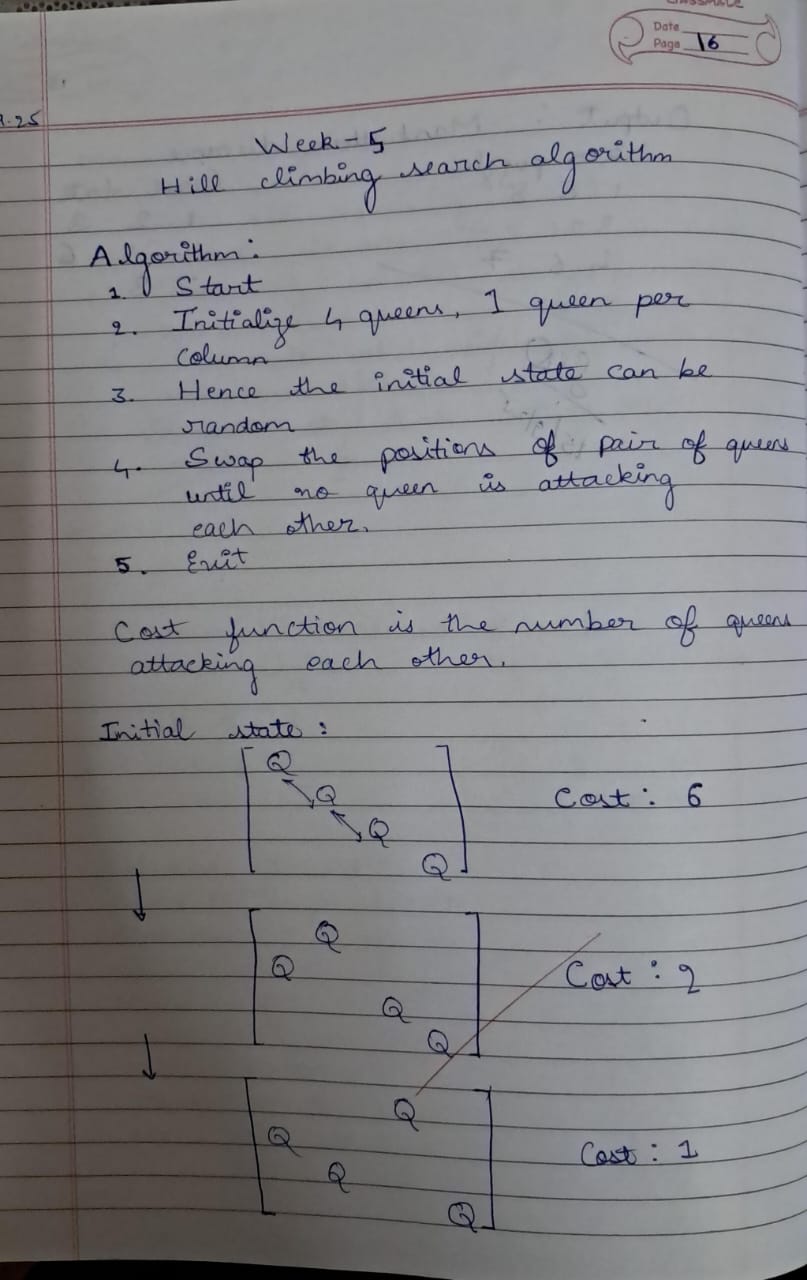 Date
Page 16
9.25
Week - 5
Hill climbing search algorithm
Algorithm:
1. Start
2. Initialize 4 queens, 1 queen per
column
3. Hence the initial state can be
random
4. Swap the positions of pair of queens
until no queen is attacking
each other.
5. Exit
Cost function is the number of queens
attacking each other.
Initial state:
Q
Q Cost: 6
Q
Q
Q
Q Cost: 2
Q
Q
Q
Q Cost: 1
Q
Q